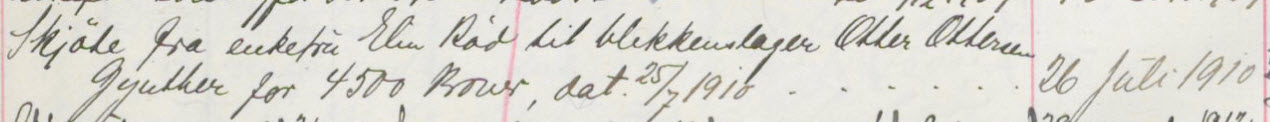 Skjöte fra enkefru Elin Röd til blikkenslager Otter Ottersen
Gynther for 4500 Kroner, dat. 25/7 1910 . . . . . . 26 Juli 1910